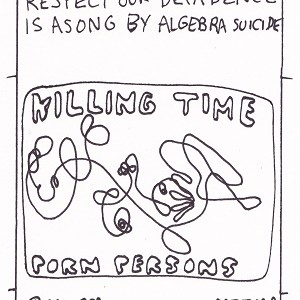 RESPECT OUR DECADENCE
IS ASONG BY ALGEBRA SUICIDE
KILLING TIME
PORN PERSONS